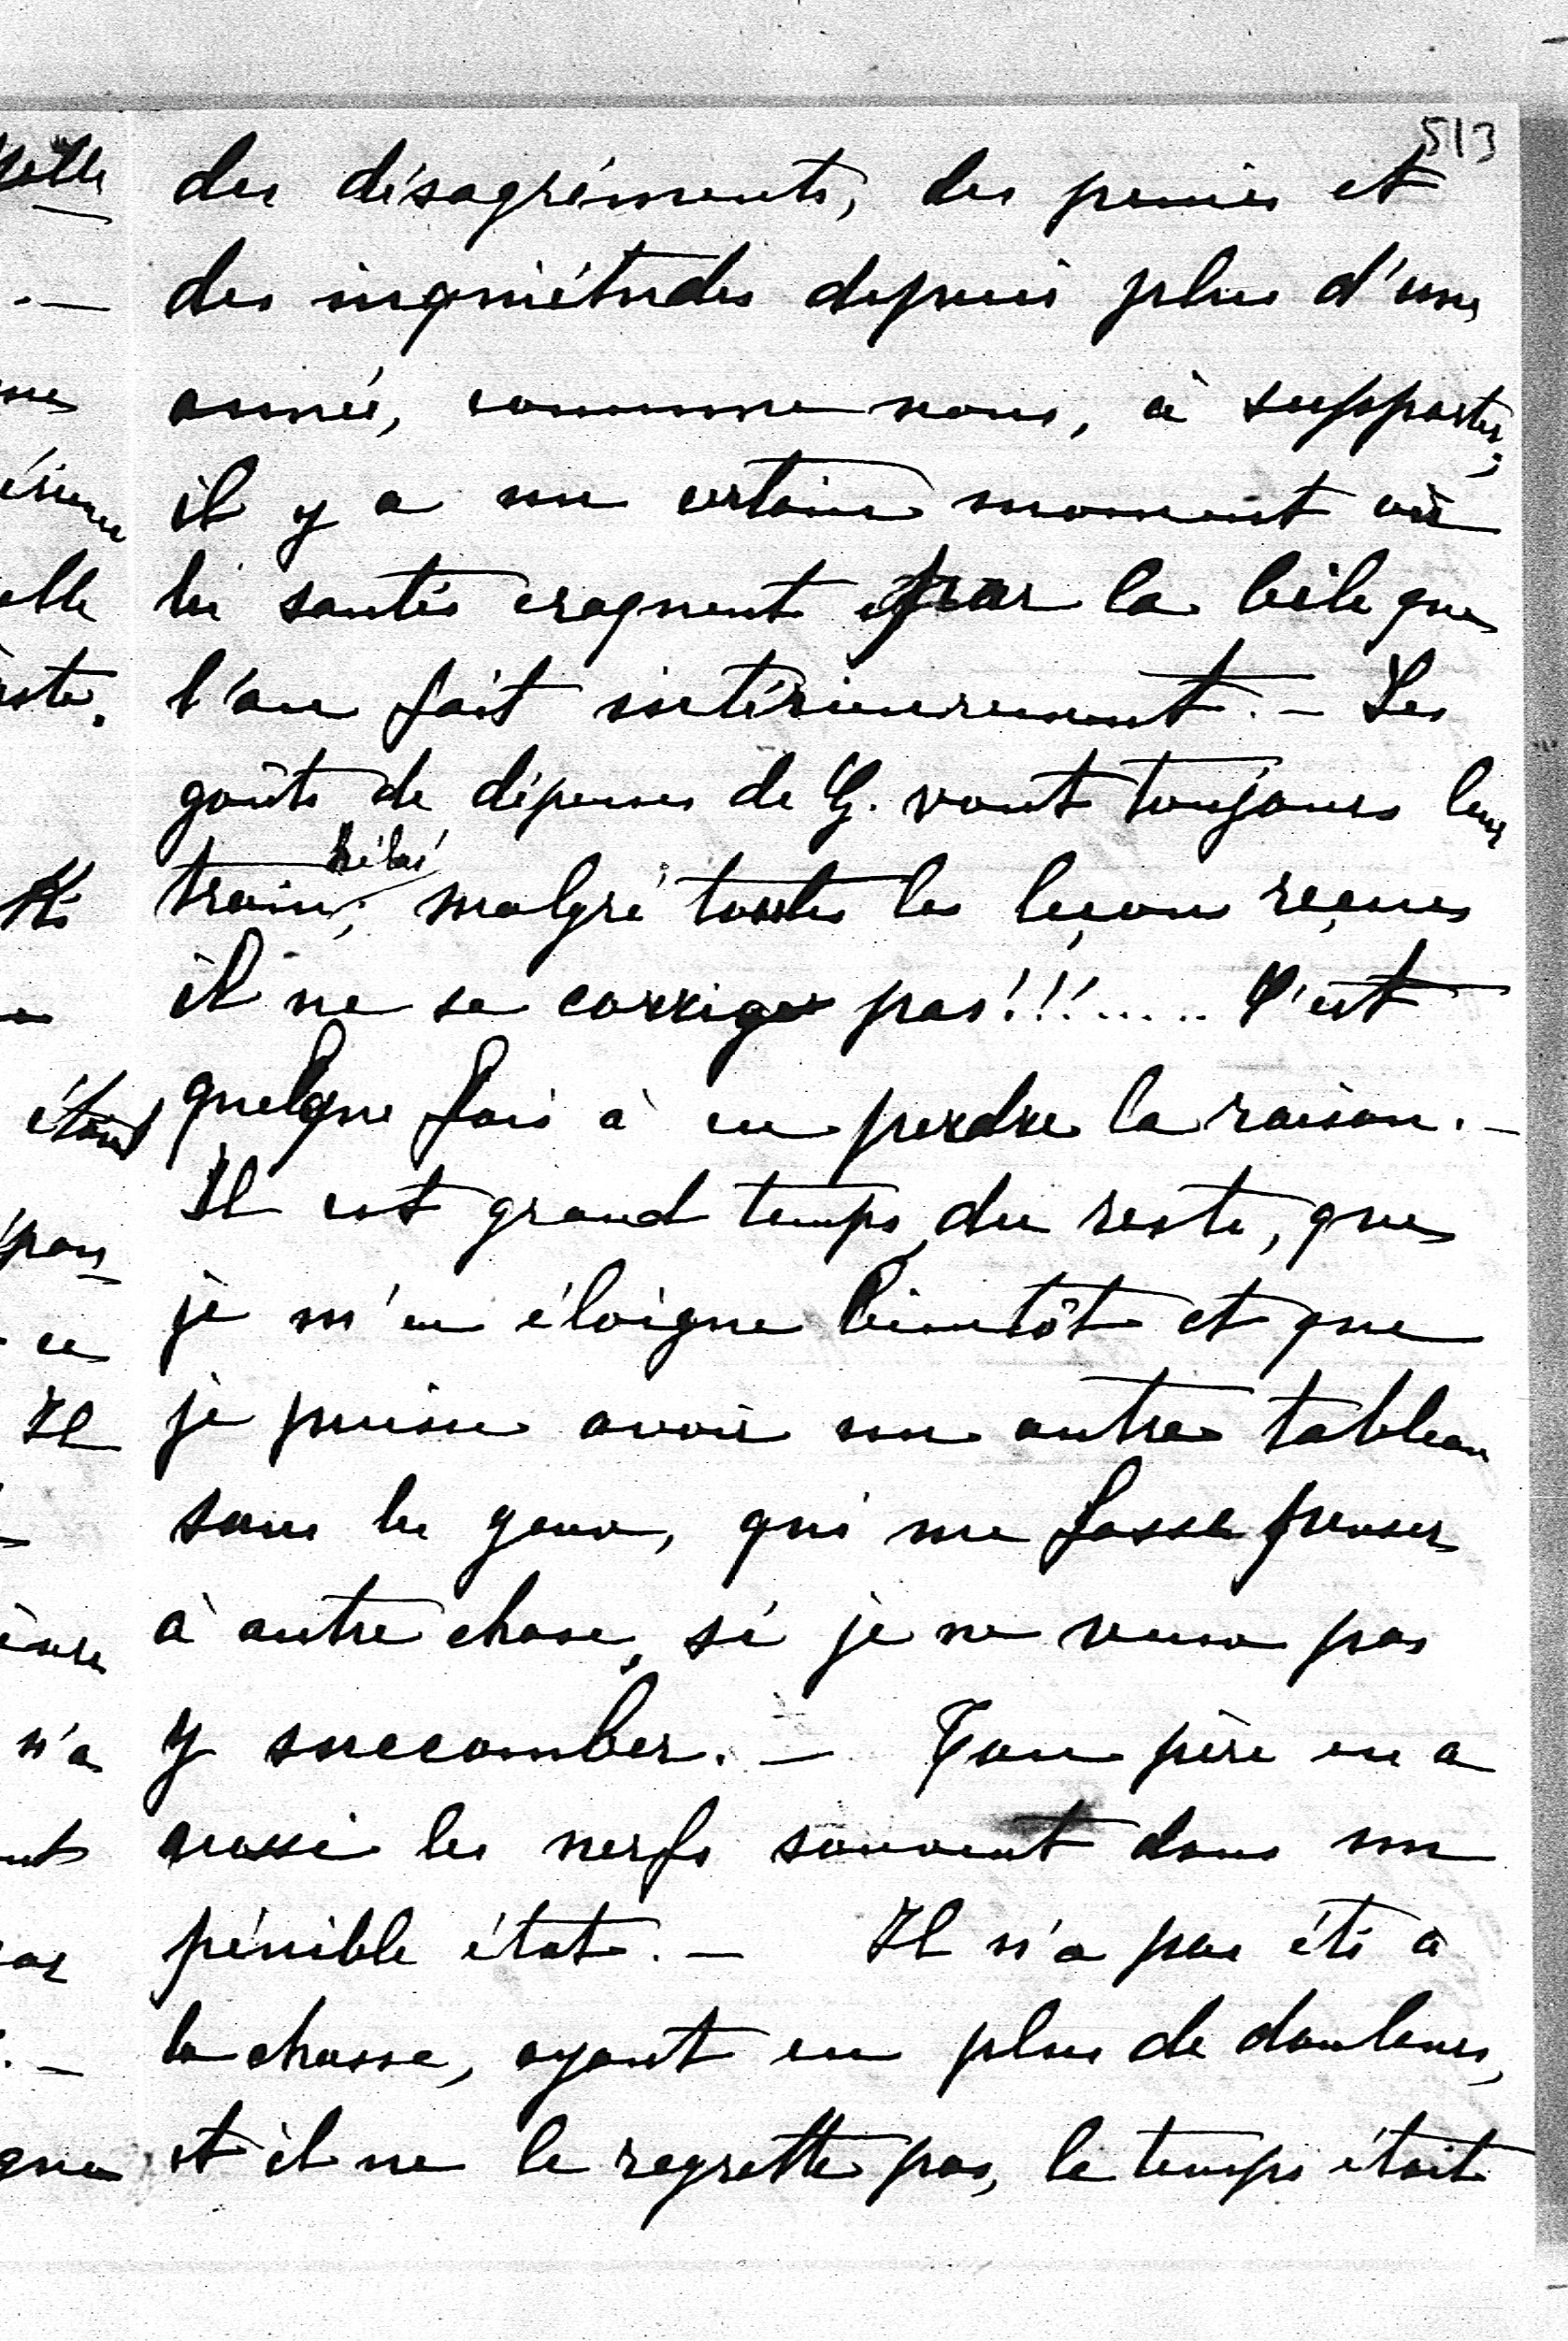 513
des désagréments, des peines et
des inquiétudes depuis plus d'une
année, comme nous, à supporter,
il y a un certain moment où
les santés craquent par la bile que
l'on fait intérieurement. – Les
goûts de dépenses de G. vont toujours leur
train, hélas! malgré toutes les leçons reçues
il ne se corrige pas!!!..... C'est
quelque fois à en perdre la raison. –
Il est grand temps, du reste, que
je m'en éloigne bientôt et que
je puisse avoir un autre tableau
sous les yeux, qui me fasse penser
à autre chose, si je ne veux pas
y succomber. – Ton père en a
aussi les nerfs souvent dans un
pénible état. – Il n'a pas été à
la chasse, ayant eu plus de douleurs,
et il ne le regrette pas, le temps était